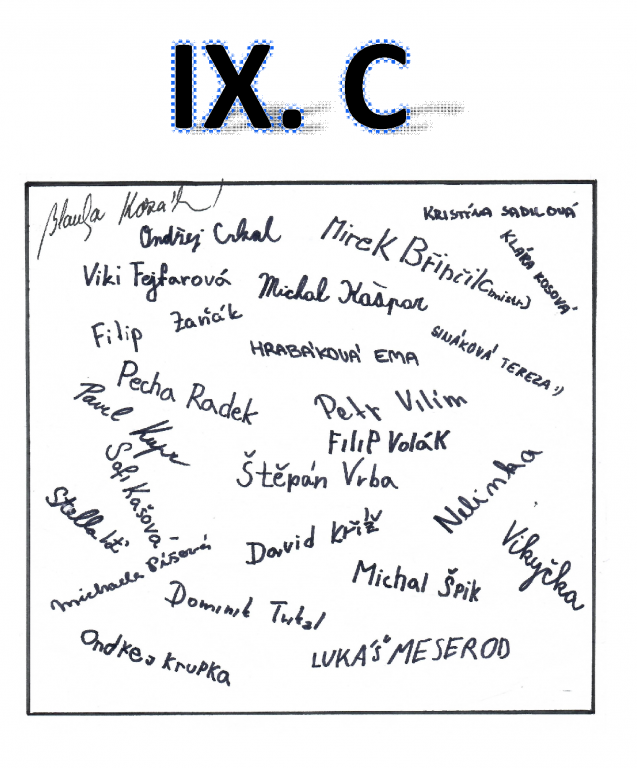 IX. C
Kozák
KRISTÍNA SADILOVÁ
Ondřej Cihal
Mirek Břinčil (mistr.)
KLÁRA KOSOVÁ
Viki Fejfarová
Michal Kašpar
Filip Zaňák
SINÁKOVÁ TEREZA :)
HRABÁKOVÁ EMA
Pecha Radek
Petr Vilím
Pavel
FILIP VOLÁK
Sofi Kašová
Štěpán Vrba
Nelinka
Stella
David Kříž
Vikyčka
Michaela Píšová
Michal Špik
Dominik
Ondřej Krupka
LUKÁŠ MESEROD